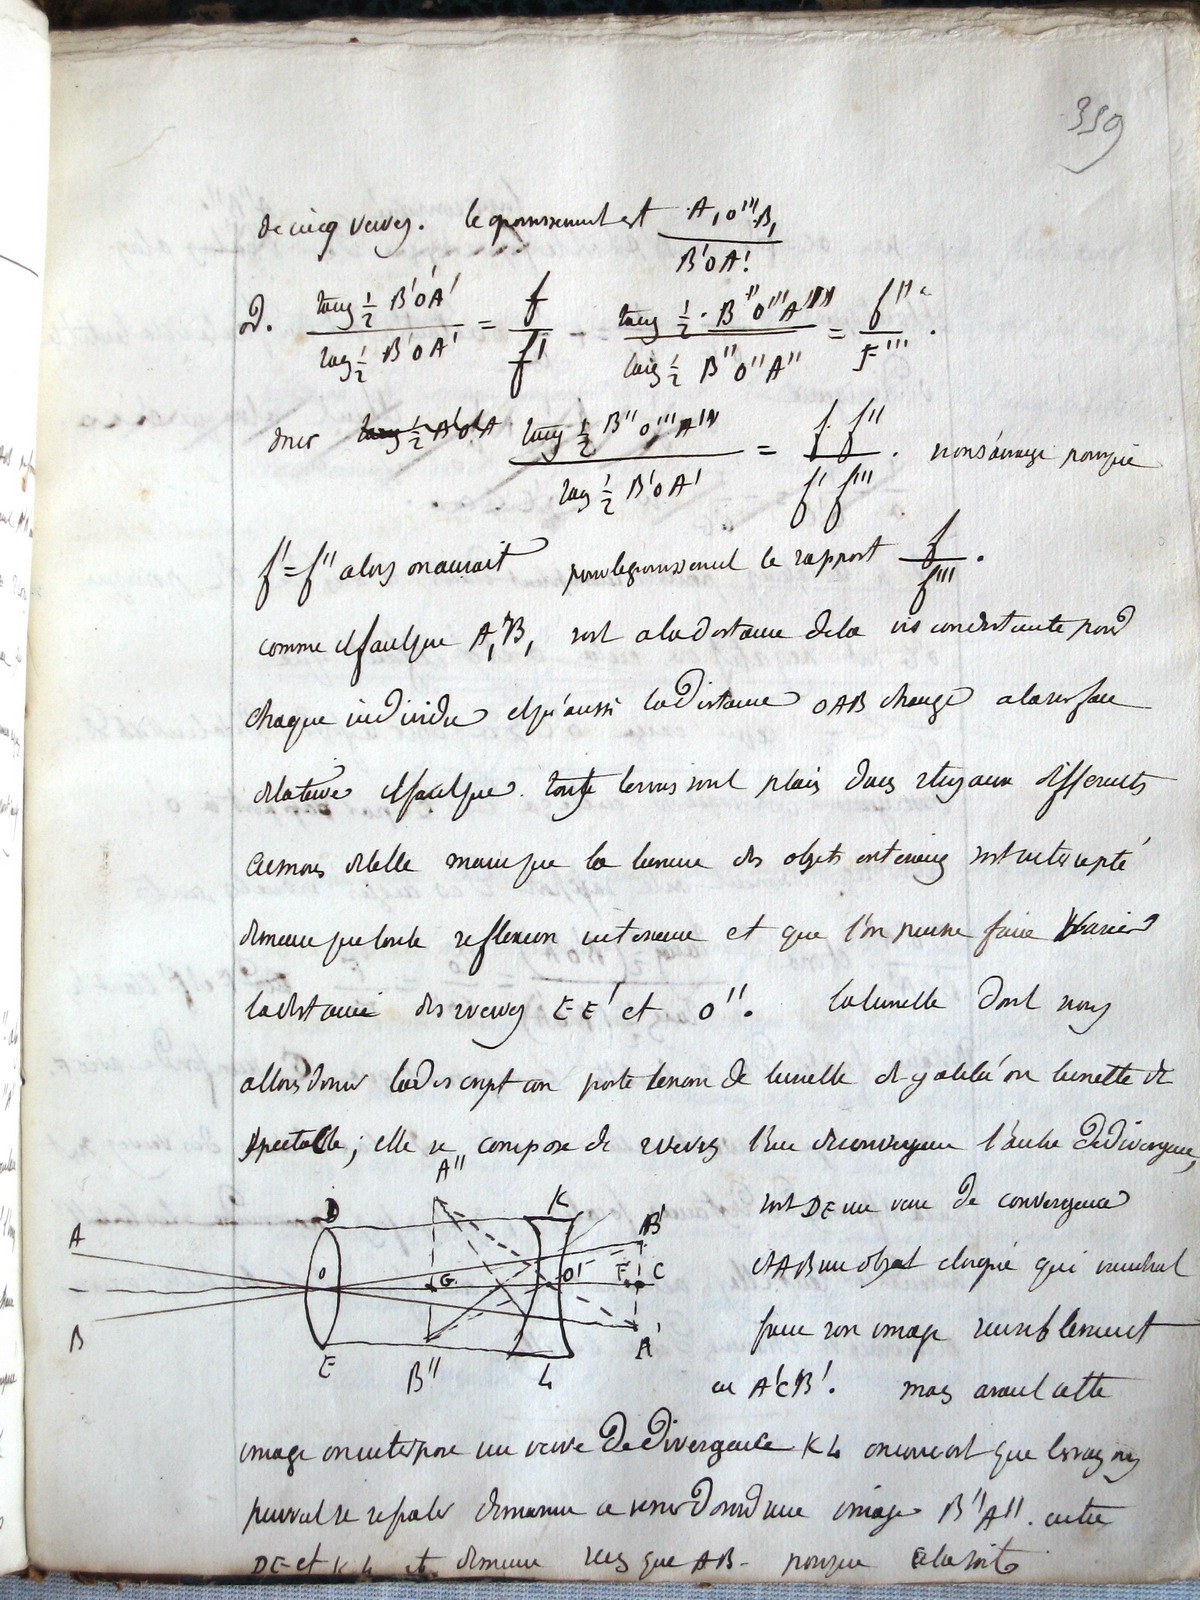 359
de cinq verres. le grossissement est A,O'''B, / B'OA'.
D. tang ½ B'O'A' / tang ½ B'OA' = f / f' tang ½ · B''O'''A'''' / tang ½ B''O''A'' = f'' / F''' .
donc tang ½ B'O'A tang ½ B''O'''A'' / tang ½ B'OA' = f f'' / f' f''' . pour que
f' = f'' alors on aurait pour le grossissement le rapport f / f''' .
comme il faut que A,B, soit a la distance de la constante pour
chaque individu et qu'aussi la distance OAB change a la surface
de la terre il faut que tous soient dans tuyaux differents
de telle maniere que la lumiere des objets soit intercepté
de meme que toute reflexion interieure et que l'on puisse faire varier
la distance des verres EE' et O''. la lunette dont nous
allons donner la description porte le nom de lunette de galilé ou lunette de
spectacle; elle se compose de 2 verres l'un de convergence l'autre de divergence,
A''
soit DE un verre de convergence
et AB un objet eloigné qui viendrait
faire son image sensiblement
en A'CB'. mais avant cette
D K B' A O G O' F C B E B'' L A'
image on interpose un verre de divergence KL on conçoit que les rayons
peuvent se de maniere a venir donner une image B''A''. entre
DE et KL et de meme sens que AB. pour que cela soit